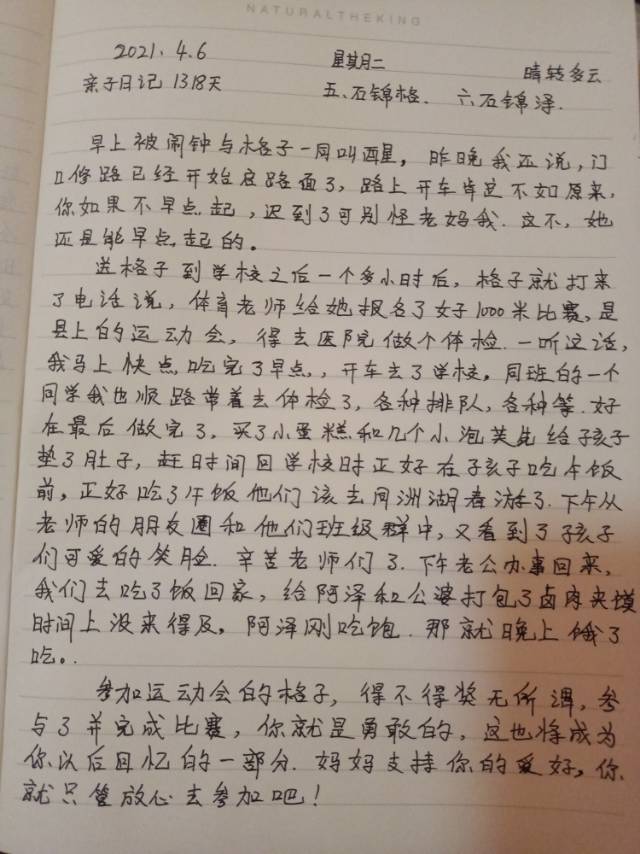 NATURALTHEKING
2021. 4.6 星期二 晴转多云
亲子日记 1318天 五.石锦格. 六石锦泽.
早上被闹钟与格子一同叫醒, 昨晚我还说, 门
口修路已经开始启路面了, 路上开车肯定不如原来,
你如果不早点起, 迟到了可别怪老妈我. 这不, 她
还是能早点起的。
送格子到学校之后一个多小时后, 格子就打来
了电话说, 体育老师给她报名了女子1000米比赛, 是
县上的运动会, 得去医院做个体检. 一听这话,
我马上快点吃完了早点, 开车去了学校, 同班的一个
同学我也顺路带着去体检了, 各种排队, 各种等. 好
在最后做完了, 买了小蛋糕和几个小泡芙先给孩子
垫了肚子, 赶时间回学校时正好在孩子吃午饭
前, 正好吃了午饭他们该去同洲湖春游了. 下午从
老师的朋友圈和他们班级群中, 又看到了孩子
们可爱的笑脸. 辛苦老师们了. 下午老公办事回来,
我们去吃了饭回家, 给阿泽和公婆打包了卤肉夹馍
时间上没来得及, 阿泽刚吃饱. 那就晚上饿了
吃。.
参加运动会的格子, 得不得奖无所谓, 参
与了并完成比赛, 你就是勇敢的, 这也将成为
你以后回忆的一部分. 妈妈支持你的爱好, 你
就只管放心去参加吧!